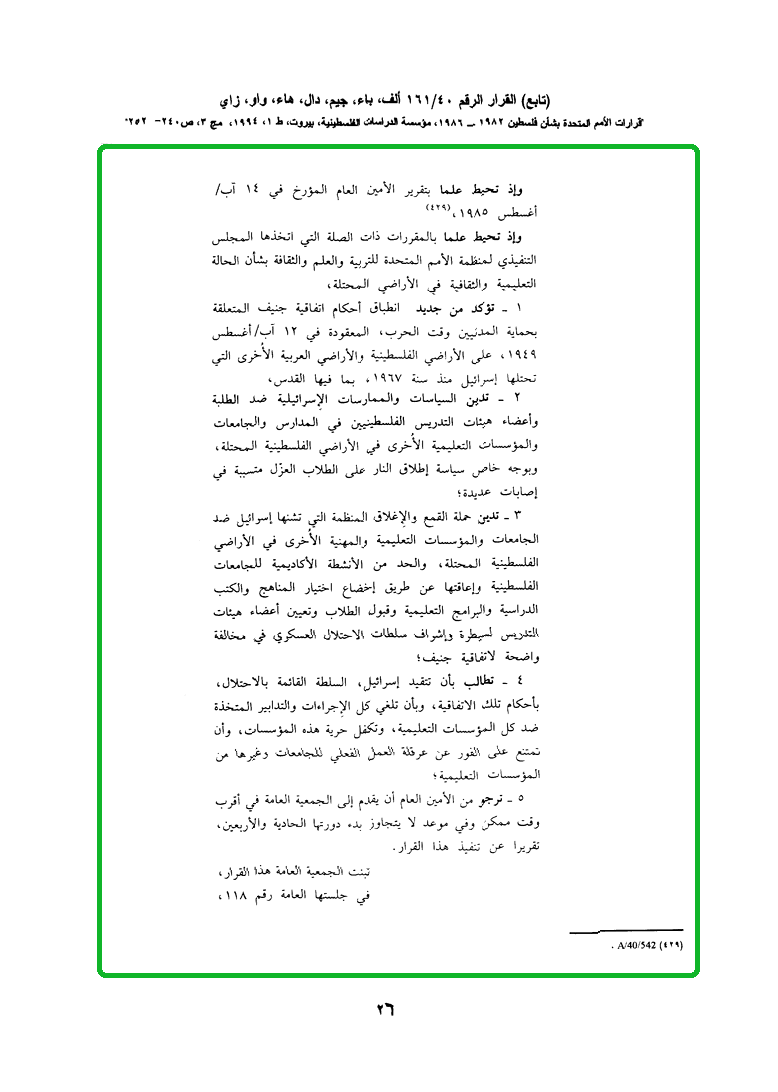 (تابع) القرار الرقم ١٦١/٤٠ ألف، باء، جيم، دال، هاء، واو، زاي
"قرارات الأمم المتحدة بشأن فلسطين ١٩٨٢ ــ ١٩٨٦، مؤسسة الدراسات الفلسطينية، بيروت، ط ١، ١٩٩٤، مج ٣، ص ٢٤٠- ٢٥٢"
وإذ تحيط علما بتقرير الأمين العام المؤرخ في ١٤ آب/
أغسطس ١٩٨٥،(٤٢٩)
وإذ تحيط علما بالمقررات ذات الصلة التي اتخذها المجلس
التنفيذي لمنظمة الأمم المتحدة للتربية والعلم والثقافة بشأن الحالة
التعليمية والثقافية في الأراضي المحتلة،
١ ـ تؤكد من جديد انطباق أحكام اتفاقية جنيف المتعلقة
بحماية المدنيين وقت الحرب، المعقودة في ١٢ آب/أغسطس
١٩٤٩، على الأراضي الفلسطينية والأراضي العربية الأخرى التي
تحتلها إسرائيل منذ سنة ١٩٦٧، بما فيها القدس،
٢ ـ تدين السياسات والممارسات الإسرائيلية ضد الطلبة
وأعضاء هيئات التدريس الفلسطينيين في المدارس والجامعات
والمؤسسات التعليمية الأخرى في الأراضي الفلسطينية المحتلة،
وبوجه خاص سياسة إطلاق النار على الطلاب العزّل متسببة في
إصابات عديدة؛
٣ ـ تدين حملة القمع والإغلاق المنظمة التي تشنها إسرائيل ضد
الجامعات والمؤسسات التعليمية والمهنية الأخرى في الأراضي
الفلسطينية المحتلة، والحد من الأنشطة الأكاديمية للجامعات
الفلسطينية وإعاقتها عن طريق إخضاع اختيار المناهج والكتب
الدراسية والبرامج التعليمية وقبول الطلاب وتعيين أعضاء هيئات
التدريس لسيطرة وإشراف سلطات الاحتلال العسكري في مخالفة
واضحة لاتفاقية جنيف؛
٤ ـ تطالب بأن تتقيد إسرائيل، السلطة القائمة بالاحتلال،
بأحكام تلك الاتفاقية، وبأن تلغي كل الإجراءات والتدابير المتخذة
ضد كل المؤسسات التعليمية، وتكفل حرية هذه المؤسسات، وأن
تمتنع على الفور عن عرقلة العمل الفعلي للجامعات وغيرها من
المؤسسات التعليمية؛
٥ ـ ترجو من الأمين العام أن يقدم إلى الجمعية العامة في أقرب
وقت ممكن وفي موعد لا يتجاوز بدء دورتها الحادية والأربعين،
تقريرا عن تنفيذ هذا القرار.
تبنت الجمعية العامة هذا القرار،
في جلستها العامة رقم ١١٨،
(٤٢٩) A/40/542 .
٢٦